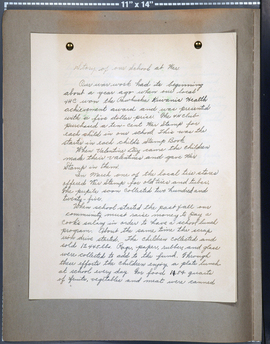 11" x 14"
History of our School at War
Our war work had its beginning
about a year ago when our local
4-C won the Health
achievement award and was presented
with a five dollar prize. The 4-C club
purchased a ten cent War Stamp for
each child in our school. This was the
starter in each child's Stamp Book.
When Valentine Day came the children
made their valentines and gave War
Stamps in them.
In March one of the local
offered War Stamps for old tires and tubes.
The pupils soon collected two hundred and
twenty-five.
When school started the past fall our
community must raise money to pay a
cook's salary in order to have a school lunch
program. About the same time the scrap
iron drive started. The children collected and
sold 12,445 lbs. Rags, paper, rubber, and glass
were collected to add to the fund. Through
their efforts the children enjoy a plate lunch
at school every day. For food 1454 quarts
of fruits, vegetables and meat were canned